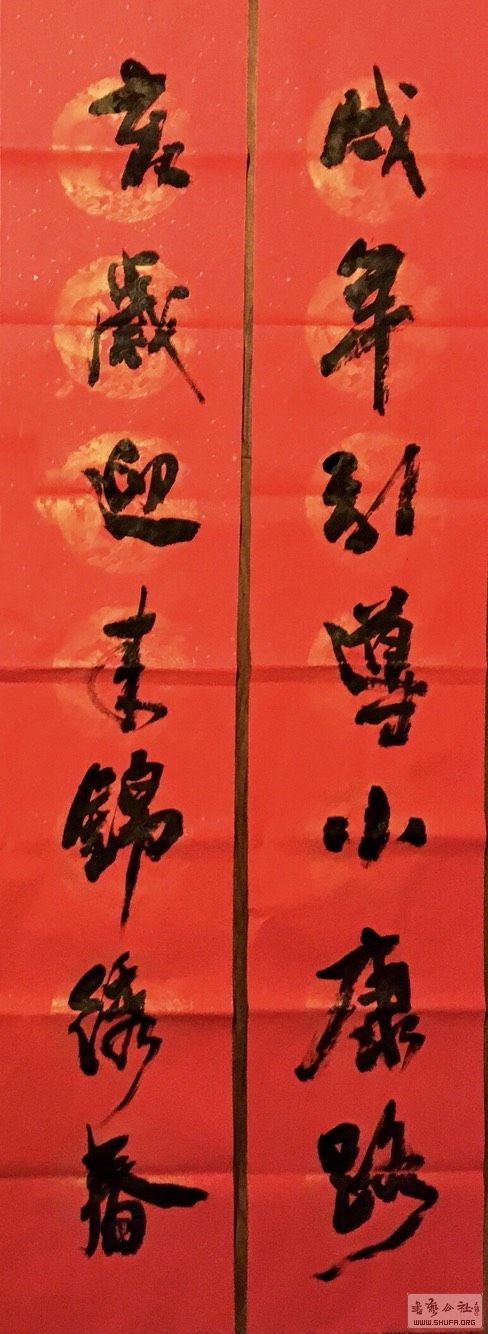 戌年引導小康路
歲迎来錦綉春
書藝公社
WWW.SHUFA.ORG